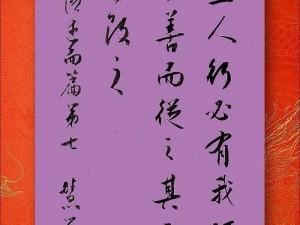 人行必有我
善而從之其
改之
述而篇第七 慧